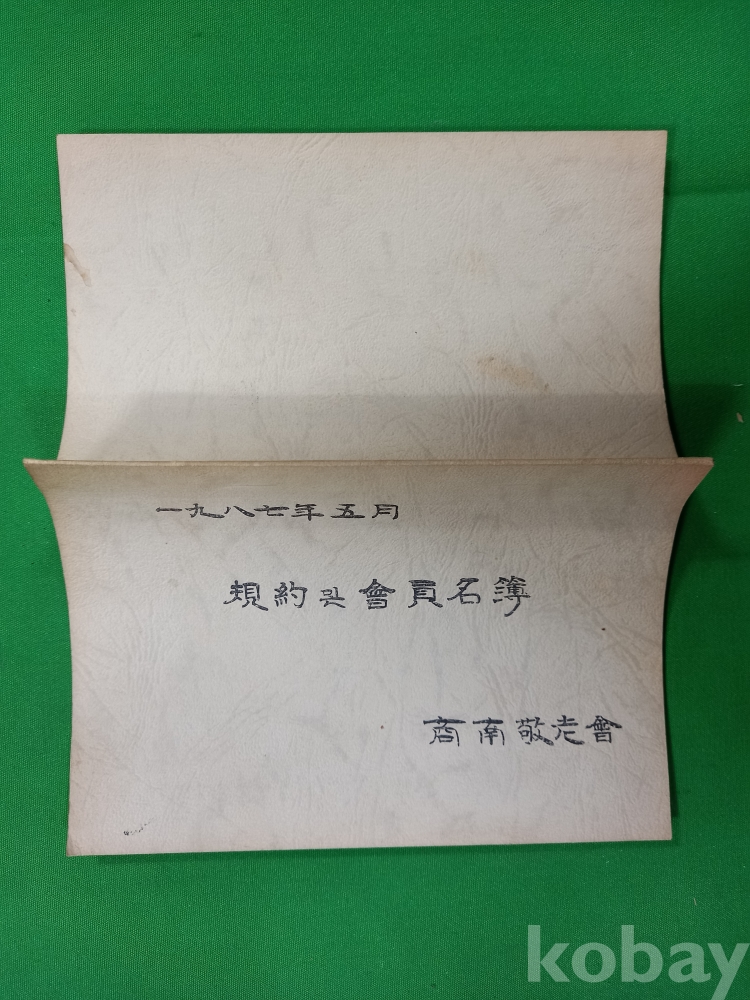 一九八七年五月
規約및會員名簿
商南敬老會
kobay